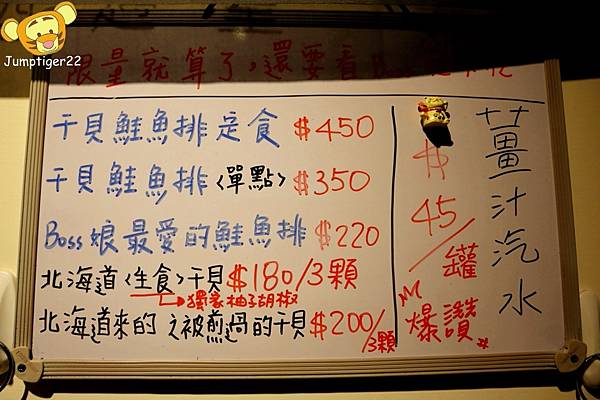 Jumptiger22
限量就算了，還要看Boss
干貝鮭魚排定食 $450
干貝鮭魚排〈單點〉$350
Boss娘最愛的鮭魚排 $220
北海道〈生食〉干貝$180/3顆
獨家柚子胡椒
北海道來的之被煎過的干貝$200/3顆
薑汁汽水
$45/罐
爆讚